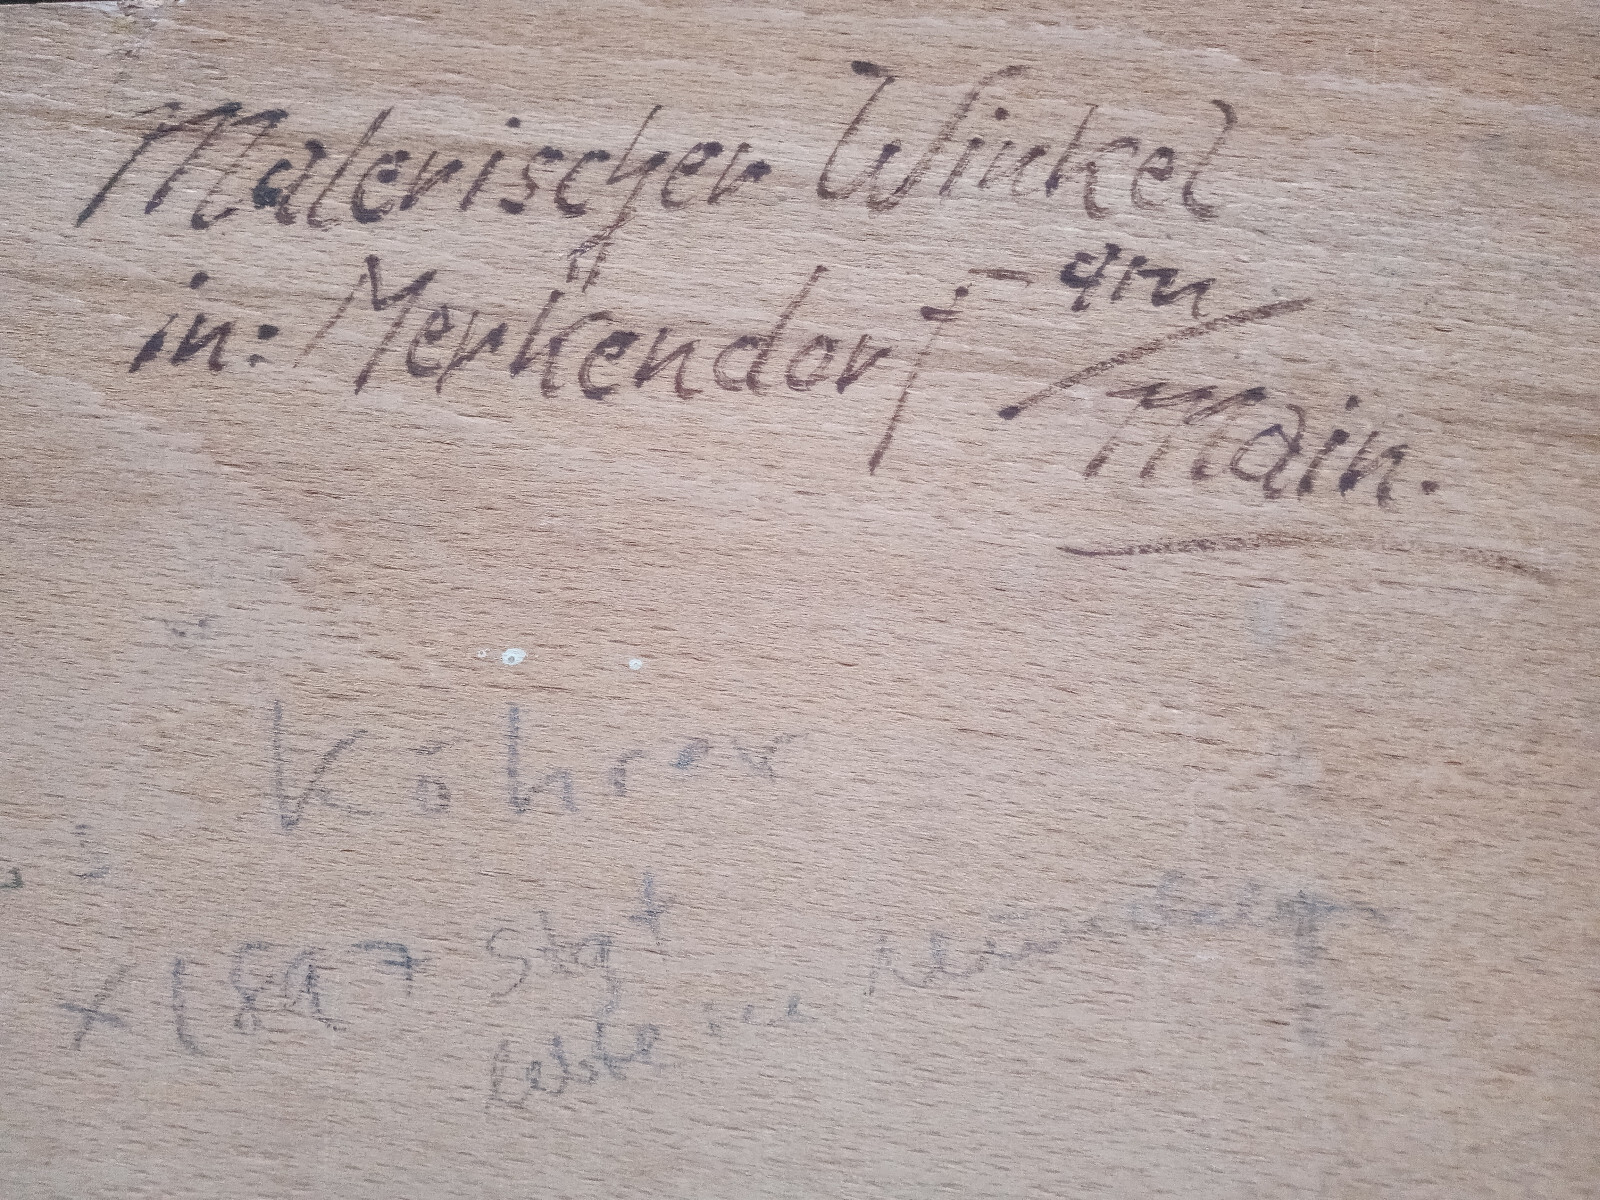 Malerischer Winkel
in: Merkendorf - am
Main.
Köhrer
* 1897 Stgt
lebte in